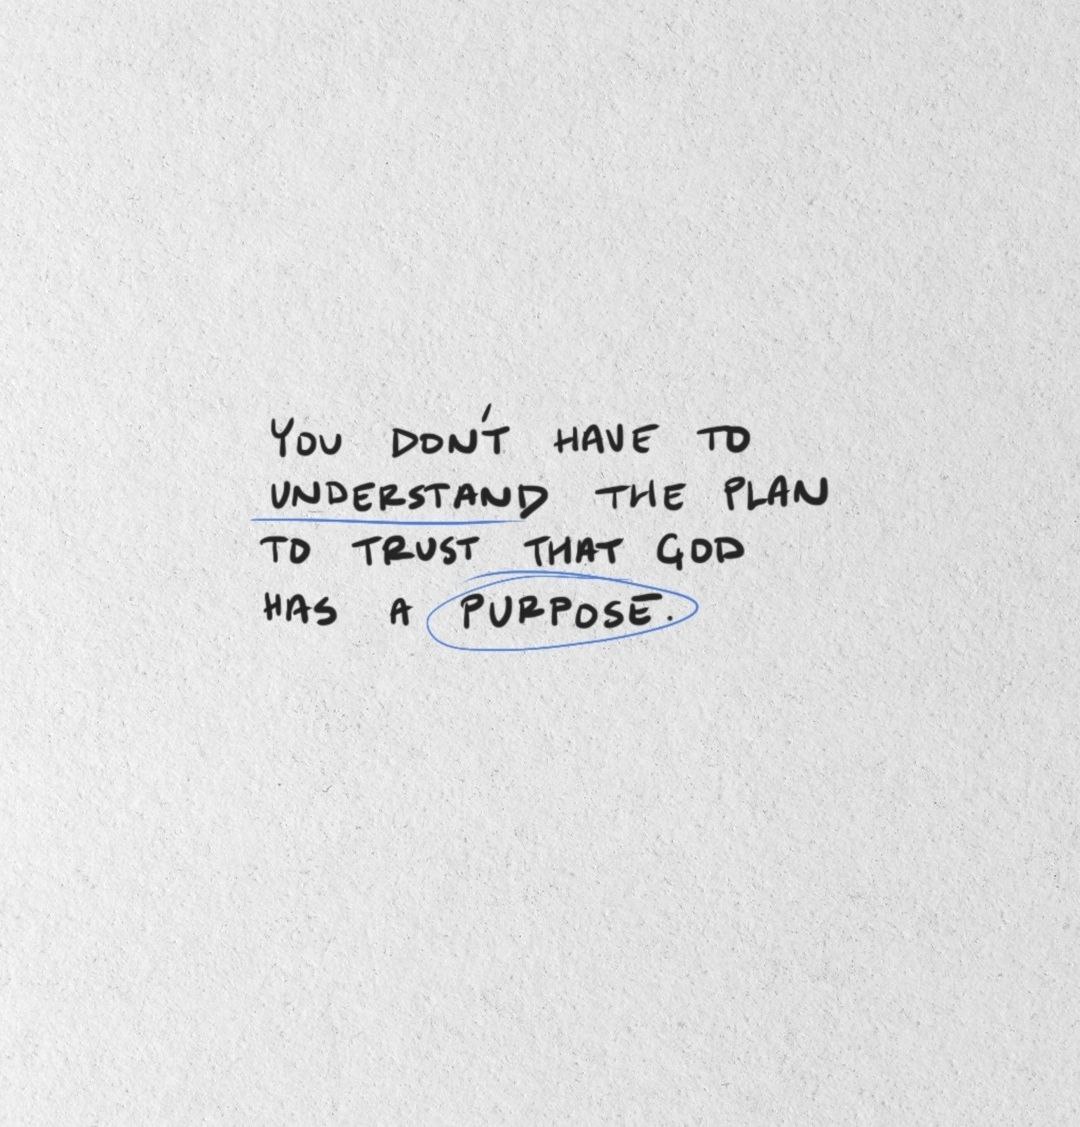 YOU DON'T HAVE TO
UNDERSTAND THE PLAN
TO TRUST THAT GOD
HAS A PURPOSE.